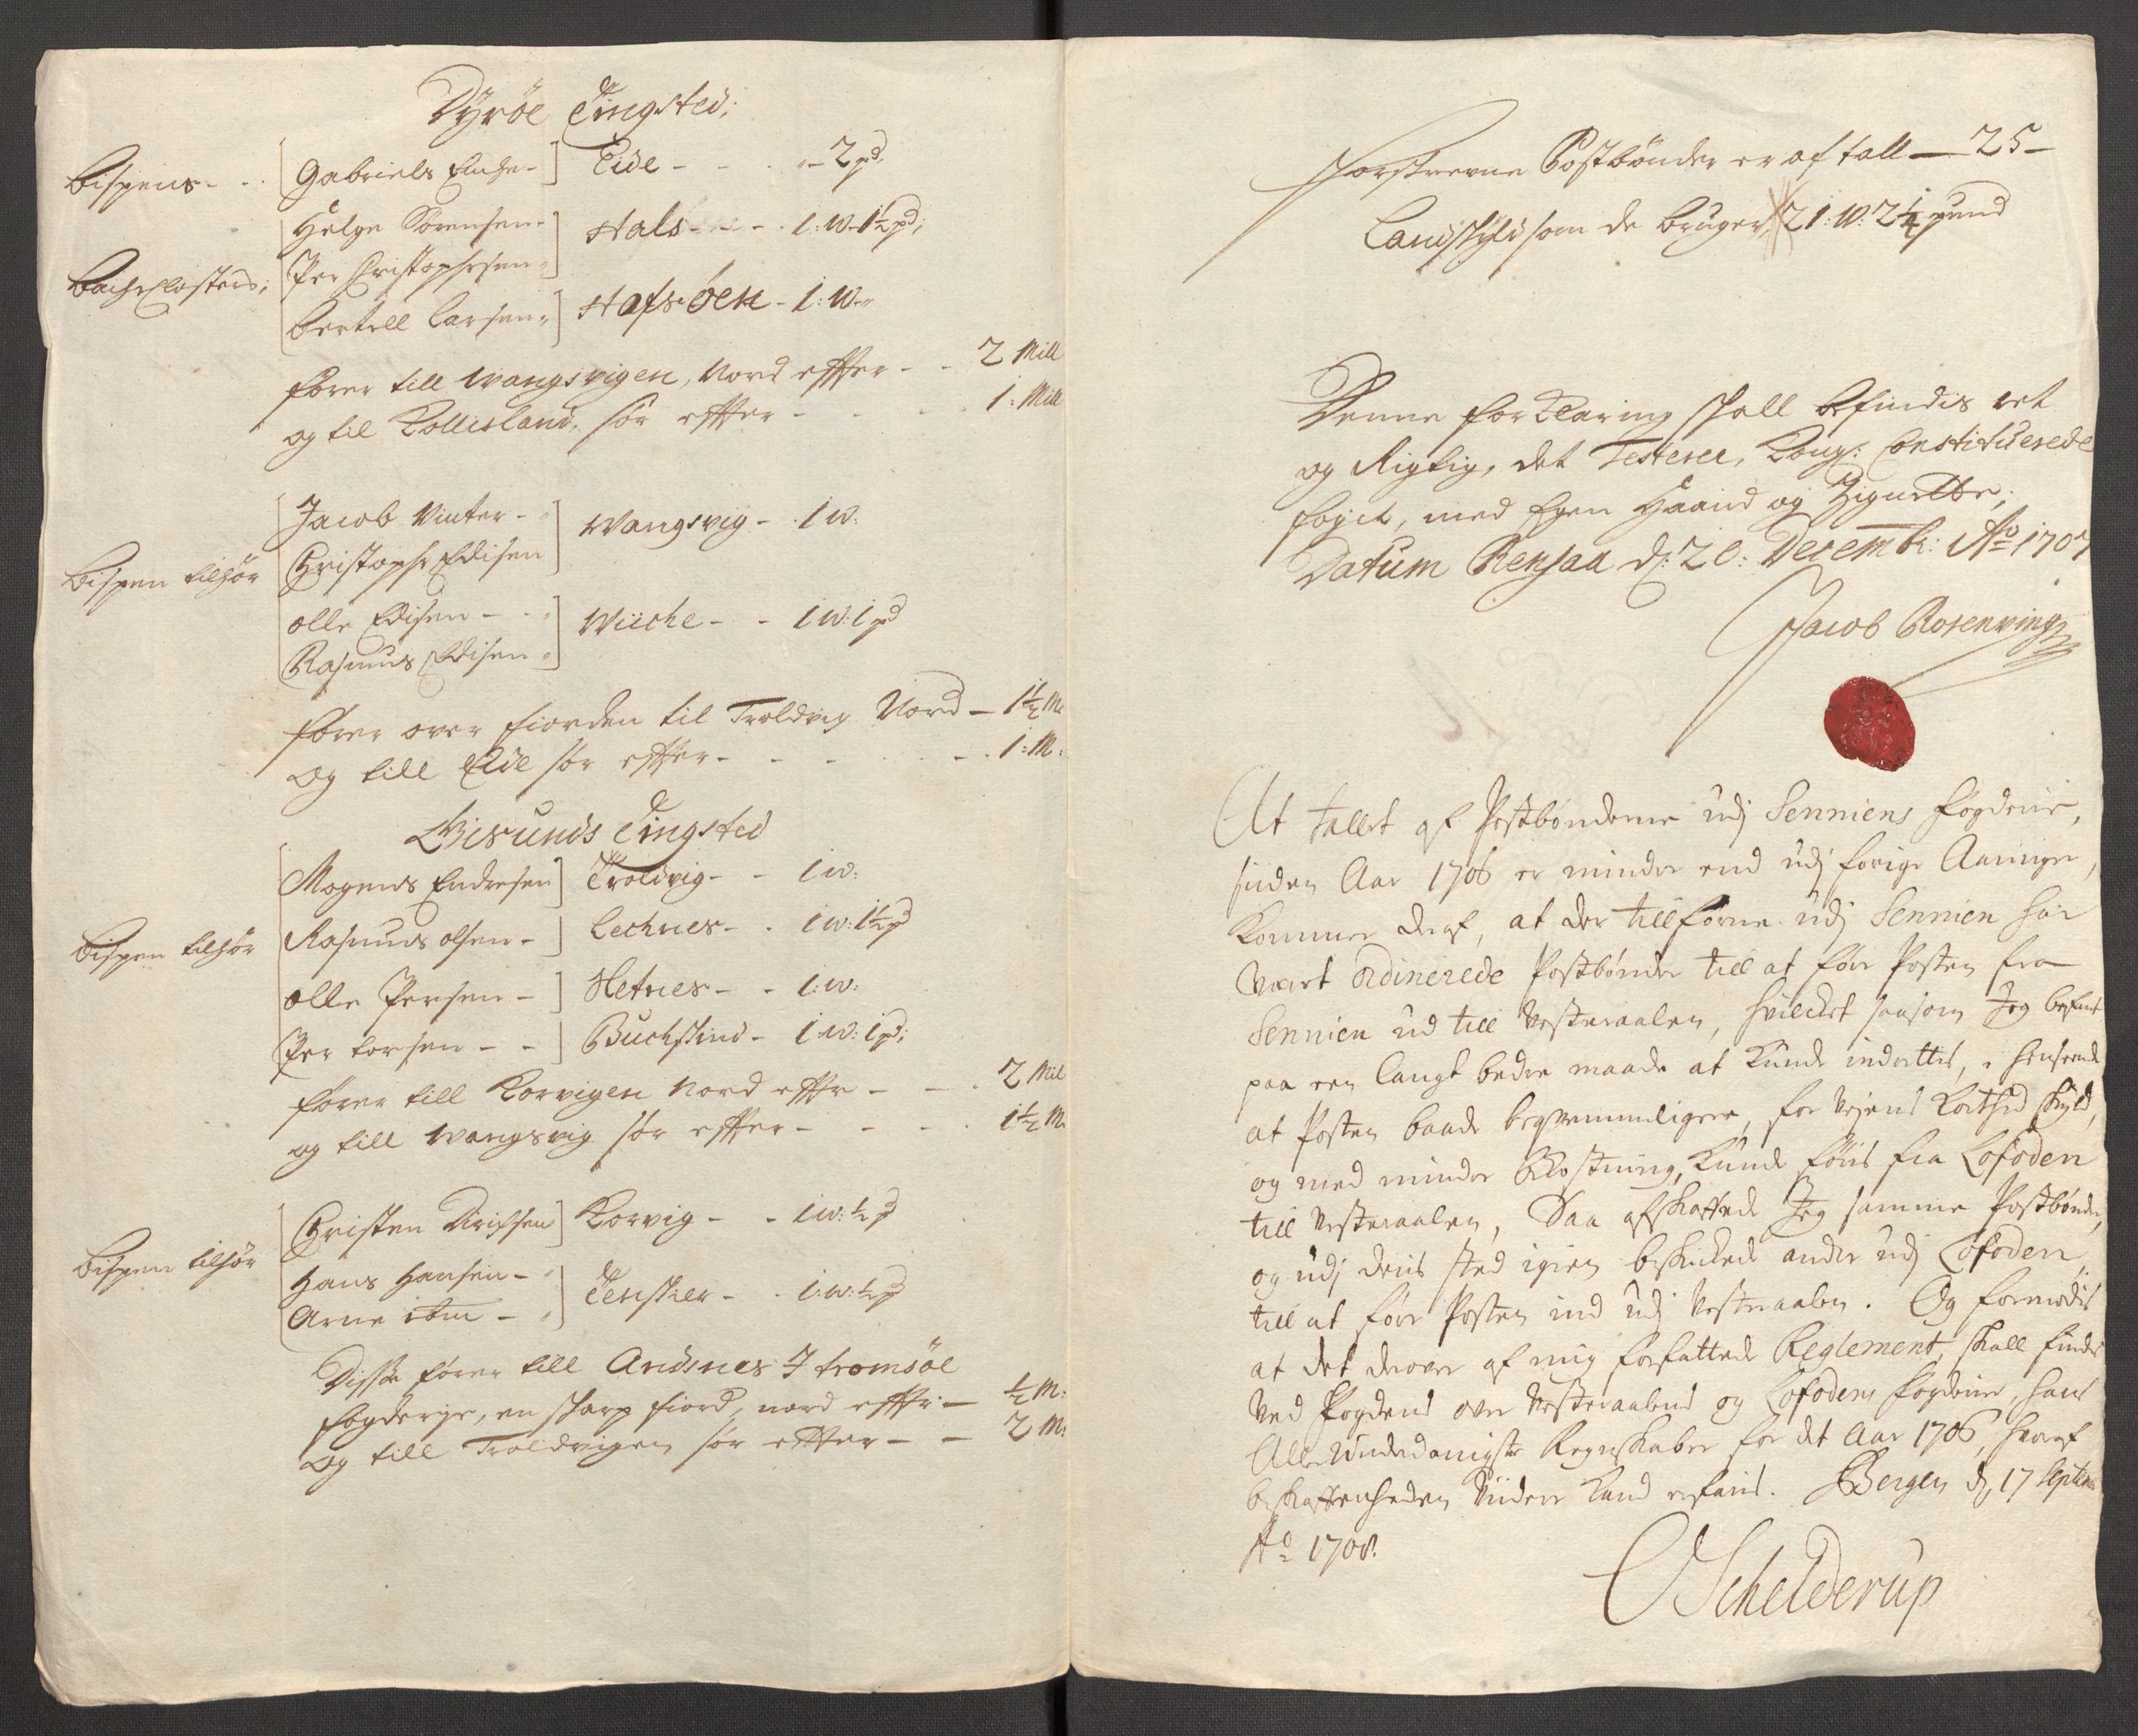 Dyröe Tingsted;
Bispens - - Gabriels Encke - Eide - - - 2 pd,
Helge Sörensen - Hals - - - 1: w - 1½ pd;
Bache Closters; Per Christophersen -
Bertell Larsen - Hafs öen - 1: w -
förer till Wangsvigen, Nord effter - - 2 Mill
og til Kollisland, sör effter - - - 1: Mill
Jacob Vinter - Wangsvig - 1 w:
Bispen tilhör Christophr Edisen
olle Edisen - - Wiiche - - 1 w: 1 pd
Rasmus Edisen -
förer over fiorden til Troldvig Nord - 1½ M:
og till Eide sör effter - - - - 1: M:
Gisunds Tingsted
Mogens Endresen Troldvig - - 1 w:
Bispen tilhör Rasmus olsen - Lechnes - - 1 w: 1½ pd
olle Persen - Hetnes - - 1: w:
Per Larsen - - Buchskind - 1 w: 1 pd;
förer till Korvigen Nord effter - - 2 Mil
og till Wangsvig sör effter - - - 1½ M
Christen Dirichsen Korvig - - 1 w: ½ pd
Bispen tilhör Hans Hansen -
Arne itm - Tenskier - - 1: w: ½ pd
Disse förer till Andsnes I tromsöe
fogderye, en skarp fiord, nord effter - ½ M:
og till Troldvigen sör effter - - 2 M:
Forskrevne Postbönder er af tall - 25 -
Landskyld som de bruger, 21: w: 2¼ pund
Denne forklaring skall befindis ret
og Rigtig, det Testerer, Kongl: Constituerede
foget, med Egen Haand og Zignette;
Datum Rensaa d: 20: Decembr: Ao 1707
Jacob Rosenving
At tallet af Postbönderne udj Senniens fogderie,
siden Aar 1706 er mindre end udj forige Aaringer,
kommer deraf, at der tillforne udj Sennien har
været ordinerede Postbönder till at före Posten fra
Sennien ud till Vesteraalen, hvilcket saasom Jeg befant
paa een langt bedre maade at kunde indrettes, i henseende
at Posten baade beqvemmeligere, for Vejens korthed skyld,
og med mindre bekostning, kunde föris fra Lofoden
till Vesteraalen, Saa afskaffede Jeg samme Postbönder,
og udj deris sted igien beskickede andre udj Lofoden,
till at före Posten ind udj Vesteraalen. Og formodis
at det derover af mig forfattede Reglement skall findes
ved Fogdens over Vesteraalens og Lofodens fogderie, hans
Allerunderdanigste Regnskaber for det Aar 1706, hvoraf
beskaffenheden viidere kand erfaris. Bergen d. 17 Septemb
Ao 1708.
O Schelderup